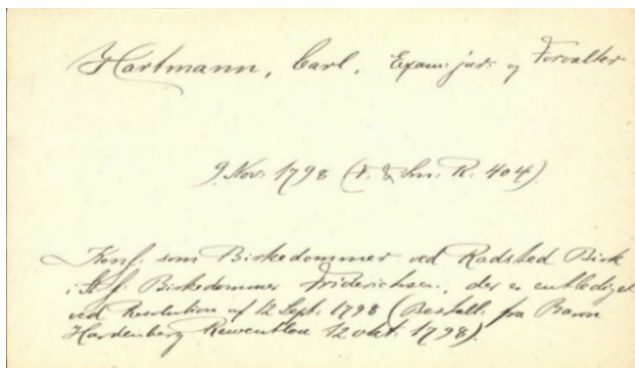 Hartmann, Carl, Exam: jur: og Forvalter
9 Nov: 1798 (F. & Sm. R. 404)
Konf. som Birkedommer ved Radsted Birk
i St. f. Birkedommer Friderichsen, der er entlediget
ved Resolution af 12 Sept. 1798 (Bestall. fra Baron
Hardenberg Rewentlou 12 okt. 1798).